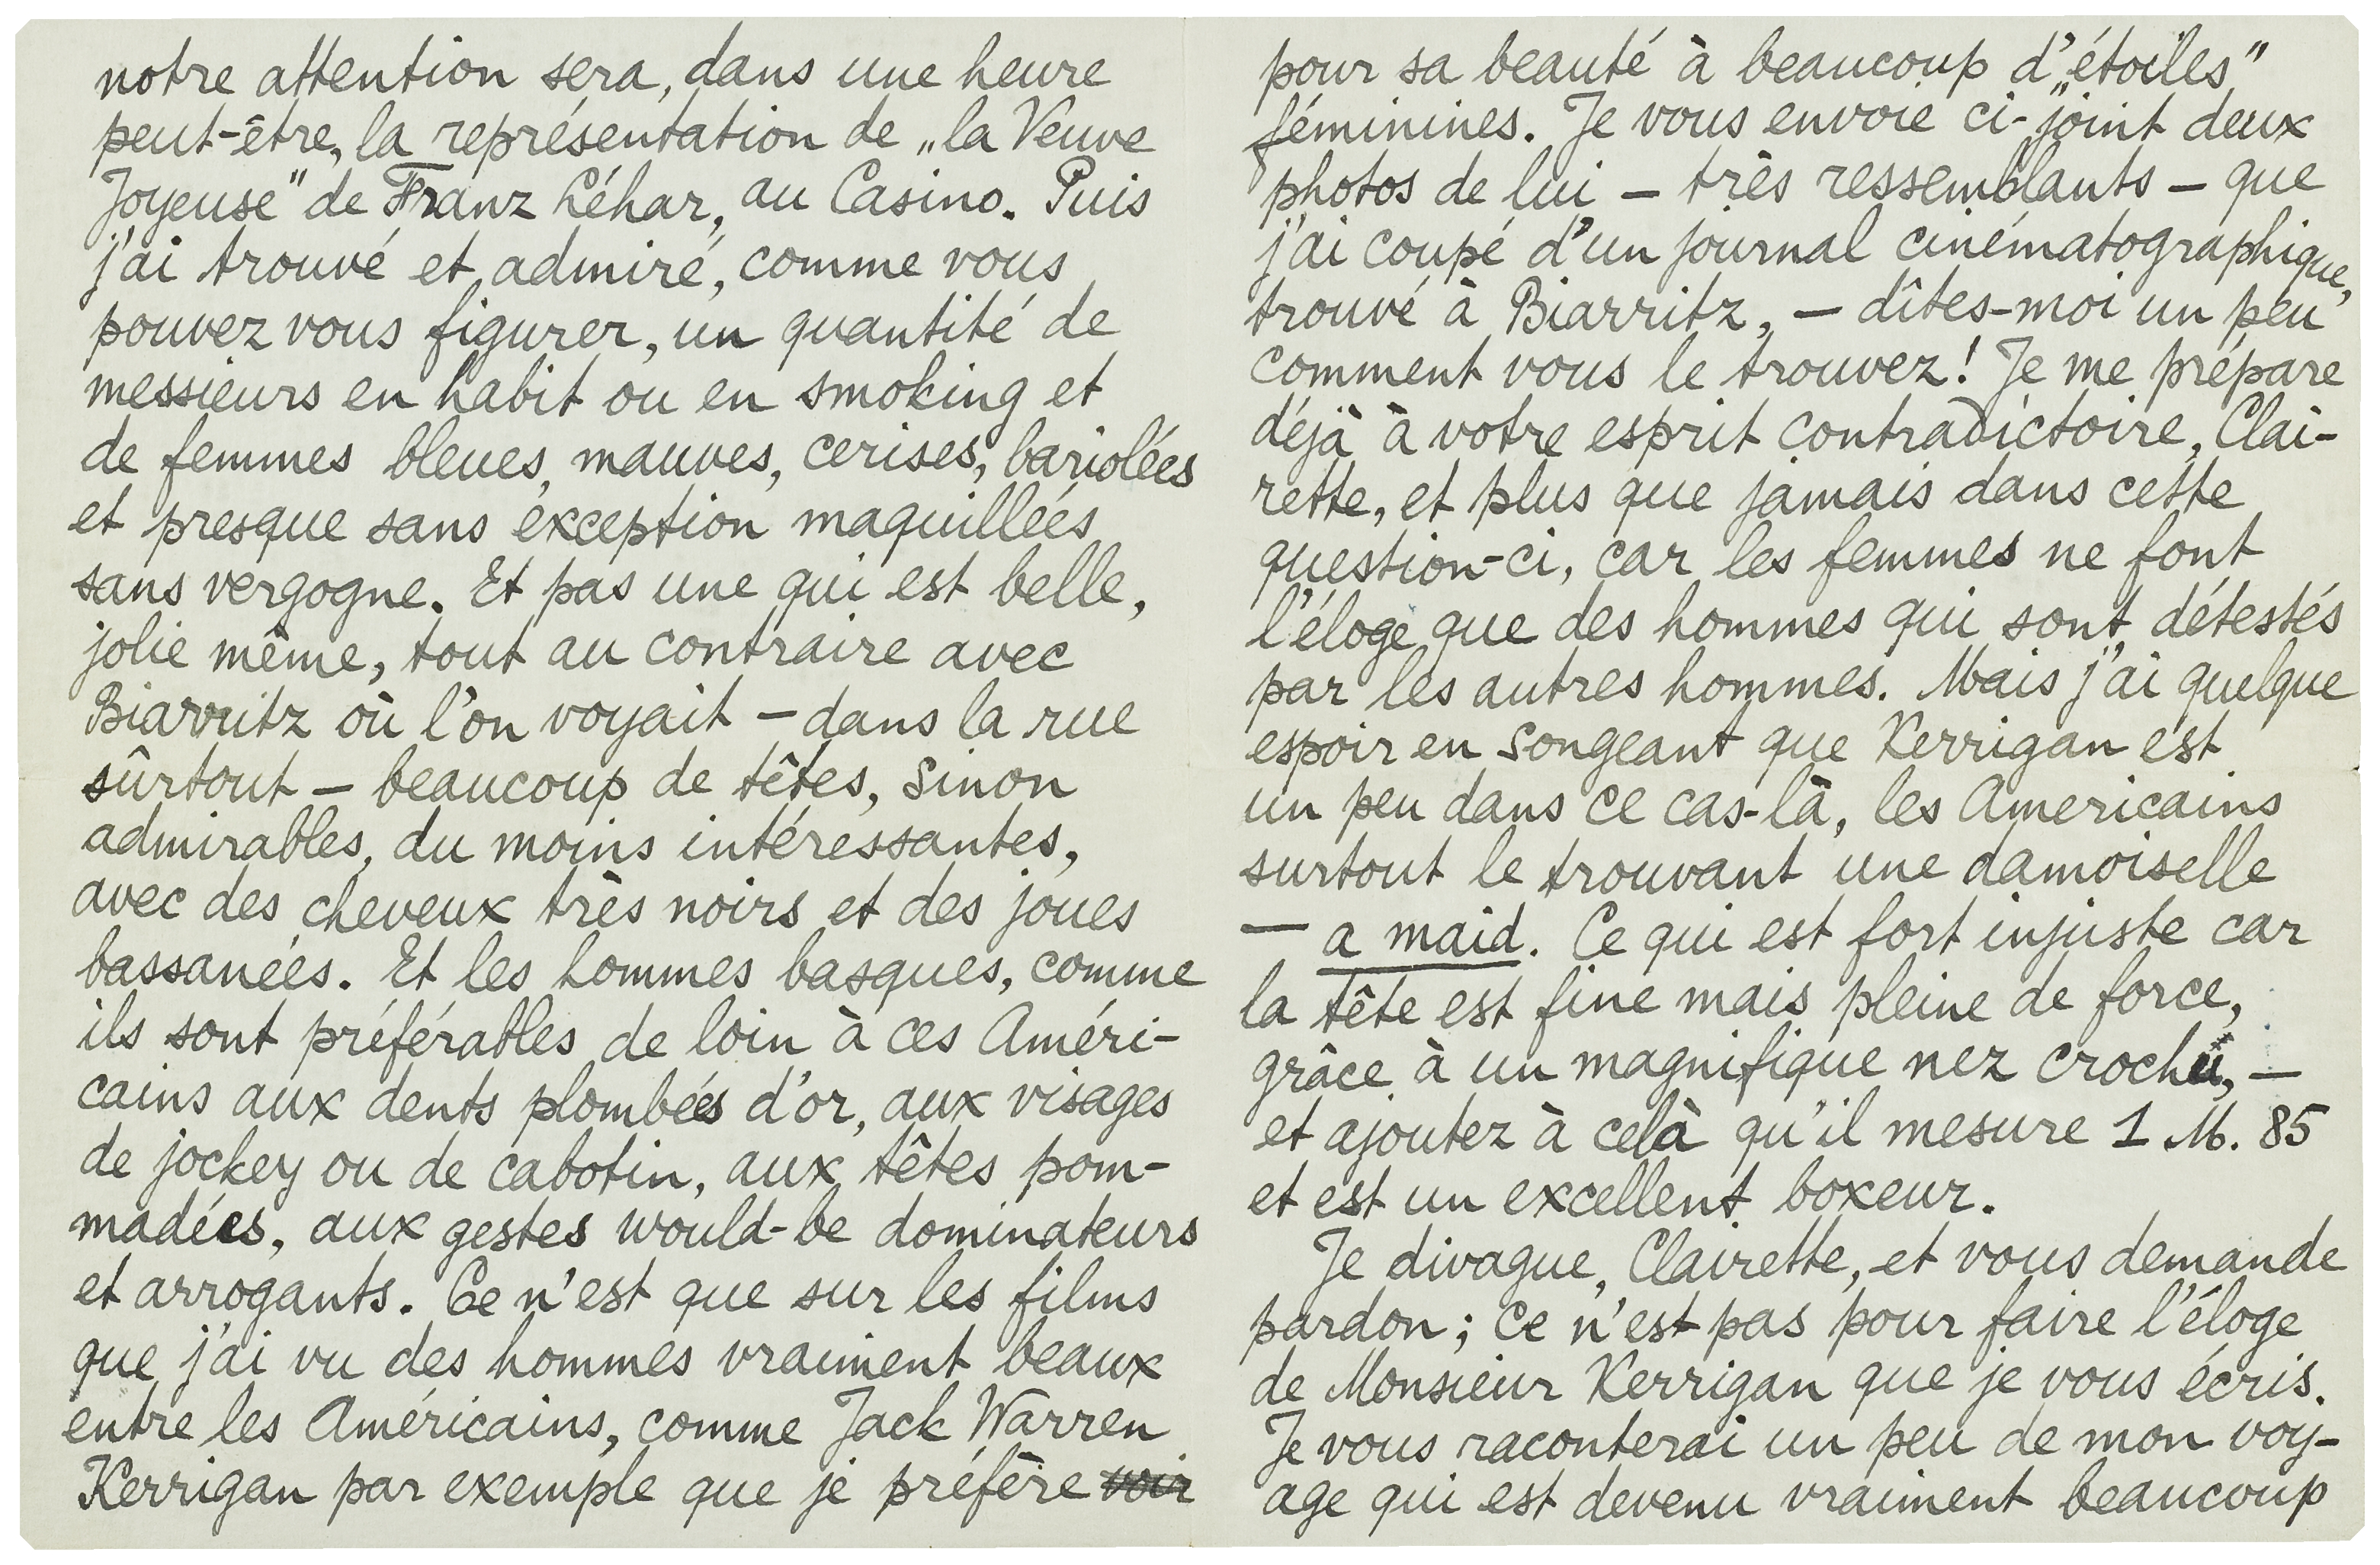 notre attention sera, dans une heure
peut-être, la représentation de „la Veuve
Joyeuse" de Franz Léhar, au Casino. Puis
j'ai trouvé et admiré, comme vous
pouvez vous figurer, un quantité de
messieurs en habit ou en smoking et
de femmes bleues, mauves, cerises, bariolées
et presque sans exception maquillées
sans vergogne. Et pas une qui est belle,
jolie même, tout au contraire avec
Biarritz où l'on voyait – dans la rue
sûrtout – beaucoup de têtes, sinon
admirables, du moins intéressantes,
avec des cheveux très noirs et des joues
bassanées. Et les hommes basques, comme
ils sont préférables de loin à ces Améri-
cains aux dents plombées d'or, aux visages
de jockey ou de cabotin, aux têtes pom-
madées, aux gestes would-be dominateurs
et arrogants. Ce n'est que sur les films
que j'ai vu des hommes vraiment beaux
entre les Américains, comme Jack Warren
Kerrigan par exemple que je préfère voir
pour sa beauté à beaucoup d'„étoiles"
féminines. Je vous envoie ci-joint deux
photos de lui – très ressemblants – que
j'ai coupé d'un journal cinématographique,
trouvé à Biarritz, – dîtes-moi un peu
comment vous le trouvez! Je me prépare
déjà à votre esprit contradictoire, Clai-
rette, et plus que jamais dans cette
question-ci, car les femmes ne font
l'éloge que des hommes qui sont détestés
par les autres hommes. Mais j'ai quelque
espoir en songeant que Kerrigan est
un peu dans ce cas-là, les Americains
surtout le trouvant une damoiselle
– a maid. Ce qui est fort injuste car
la tête est fine mais pleine de force,
grâce à un magnifique nez crochu, –
et ajoutez à celà qu'il mesure 1 M. 85
et est un excellent boxeur.
Je divague, Clairette, et vous demande
pardon; ce n'est pas pour faire l'éloge
de Monsieur Kerrigan que je vous écris.
Je vous raconterai un peu de mon voy-
age qui est devenu vraiment beaucoup